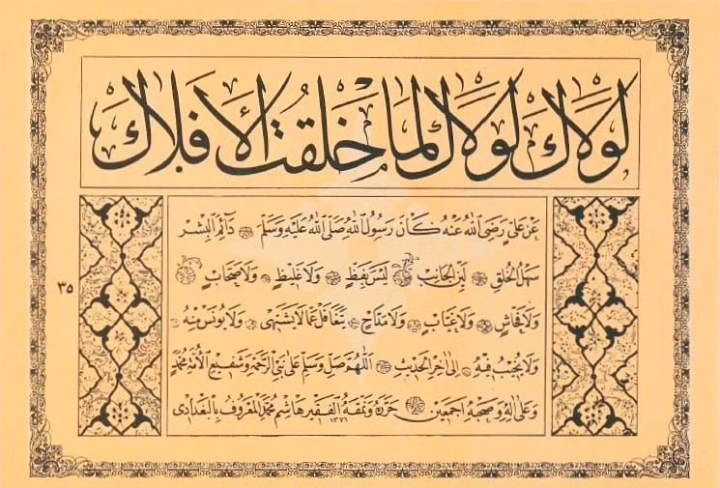 لولاك لولاك لما خلقت الأفلاك
عن علي رضي الله عنه كان رسول الله صلى الله عليه وسلم دائم البشر
سهل الخلق لين الجانب ليس بفظ ولا غليظ ولا صخاب
ولا فحاش ولا عياب ولا مداح يتغافل عما لا يشتهي ولا يؤنس منه
ولا يجيب فيه إلى آخر الحديث اللهم صل وسلم على نبي الرحمة وشفيع الأمة محمد
وعلى آله وصحبه أجمعين حرره ونمقه الفقير هاشم محمد المعروف بالبغدادي
٣٥